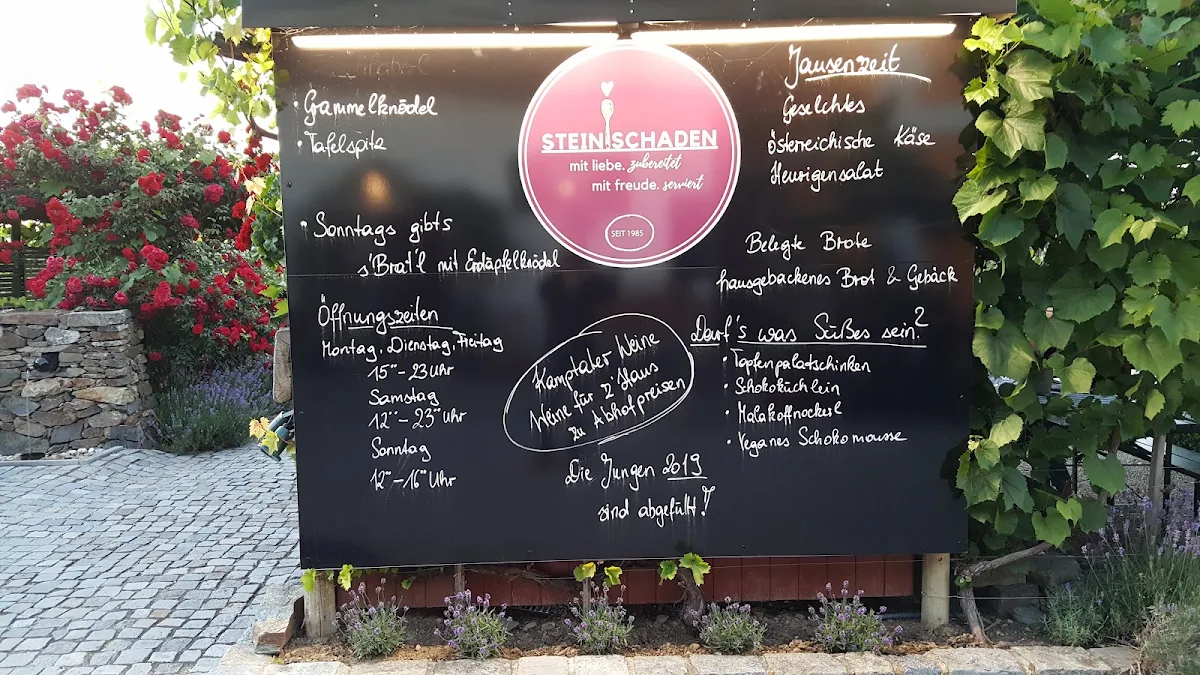 • Grammelknödel
• Tafelspitz
• Sonntags gibt's
s'Brat'l mit Erdäpfelknödel
Öffnungszeiten
Montag, Dienstag, Freitag
15°° - 23 Uhr
Samstag
12°° - 23°° Uhr
Sonntag
12°° - 16°° Uhr
STEINSCHADEN
mit liebe. zubereitet
mit freude. serviert
SEIT 1985
Kamptaler Weine
Weine für z'Haus
zu Abhofpreisen
Die Jungen 2019
sind abgefüllt!
Jausenzeit
Geselchtes
Österreichische Käse
Heurigensalat
Belegte Brote
hausgebackenes Brot & Gebäck
Darf's was Süßes sein?
• Topfenpalatschinken
• Schokoküchlein
• Malakoffnockerl
• Veganes Schokomousse